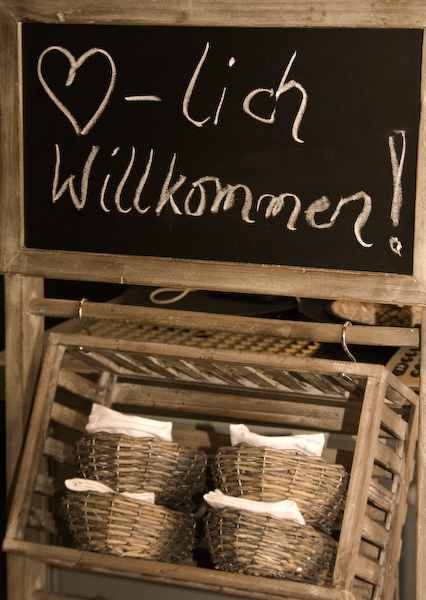 ♡-lich
Willkommen!